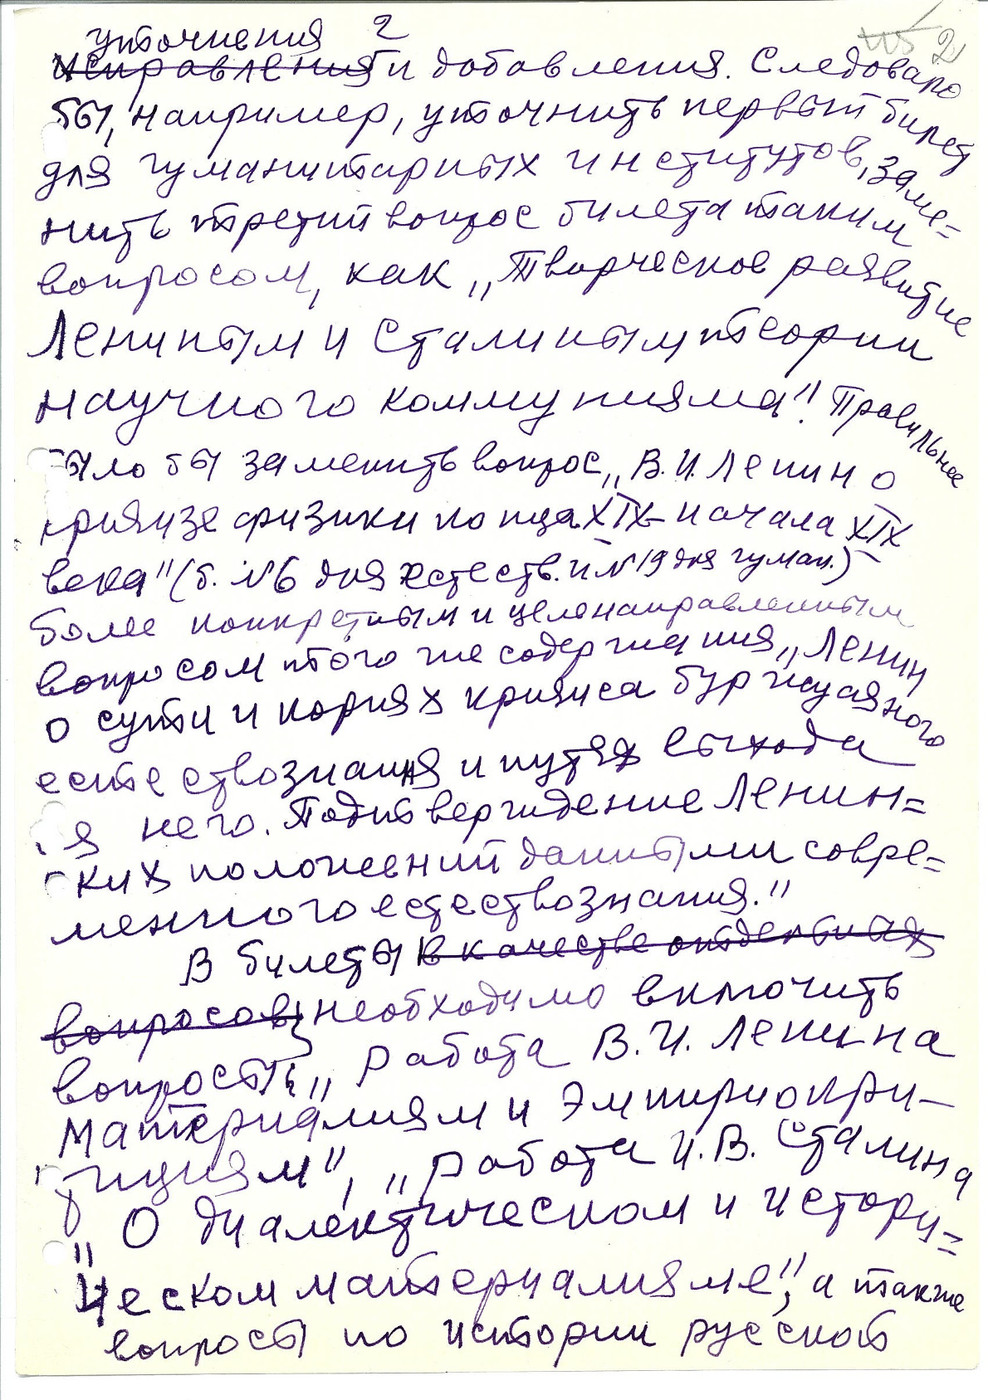 уточнения 2
2
исправления и добавления. Следовало
бы, например, уточнить первый билет
для гуманитарных институтов, заме=
нить третий вопрос билета таким
вопросом, как „Творческое развитие
Лениным и Сталиным теории
научного коммунизма". Правильнее
было бы заменить вопрос „В.И. Ленин о
кризисе физики конца XIX – начала XIX
века" (б. №6 для естеств. и №19 для гуман.)
более конкретным и целенаправленным
вопросом того же содержания „Ленин
о сути и корнях кризиса буржуазного
естествознания и путях выхода
из него. Подтверждение Ленин=
ских положений данными совре=
менного естествознания."
В билеты в качестве отдельных
вопросов необходимо включить
вопросы: „Работа В.И. Ленина
Материализм и Эмпириокри–
тицизм", „Работа И.В. Сталина
„О диалектическом и истори=
ческом материализме", а также
вопросы по истории русской